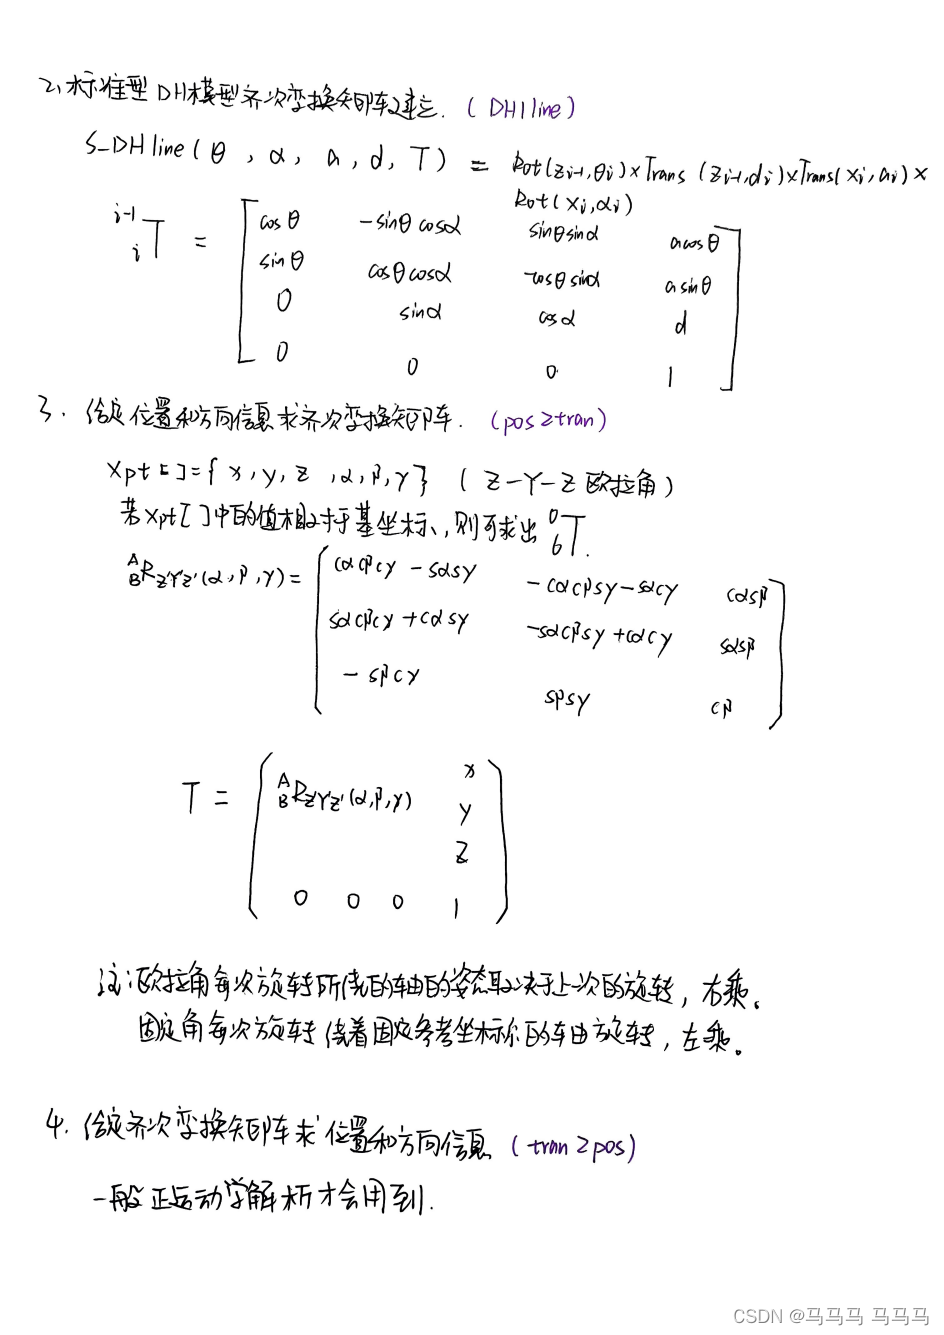 2、标准型DH模型齐次变换矩阵建立.(DH1line)
S_DHline(θ,α,a,d,T) = Rot(Zi-1,θi)×Trans(Zi-1,di)×Trans(Xi,ai)×
Rot(Xi,αi)
i-1 i T = [ cosθ -sinθcosα sinθsinα acosθ
sinθ cosθcosα -cosθsinα asinθ
0 sinα cosα d
0 0 0 1 ]
3. 给定位置和方向信息求齐次变换矩阵.(pos2tran)
Xpt[]={x,y,z,α,β,γ} (Z-Y-Z欧拉角)
若Xpt[]中的值相对于基坐标,则可求出 0 6 T.
A B R Z'Y'Z'(α,β,γ)= ( cαcβcγ - sαsγ -cαcβsγ-sαcγ cαsβ
sαcβcγ+cαsγ -sαcβsγ+cαcγ sαsβ
-sβcγ sβsγ cβ )
T = ( A B R Z'Y'Z'(α,β,γ) x
y
z
0 0 0 1 )
注:欧拉角每次旋转所绕的轴的姿态取决于上一次的旋转,右乘。
固定角每次旋转绕着固定参考坐标系的轴旋转,左乘。
4. 给定齐次变换矩阵求位置和方向信息(tran2pos)
一般正运动学解析才会用到.
CSDN @马马马 马马马